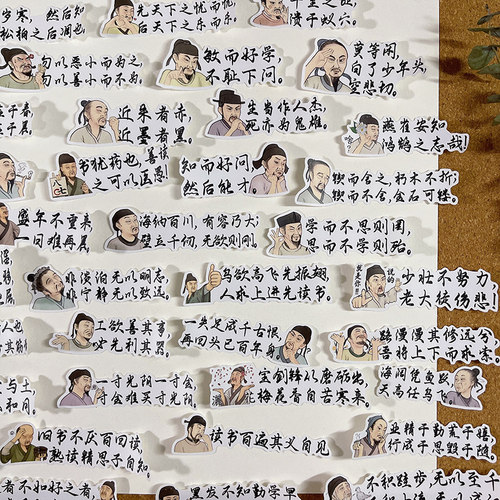 岁寒，然后知
松柏之后凋也
先天下之忧而忧，
后天下之乐而乐。
千里之堤，
溃于蚁穴。
勿以恶小而为之，
勿以善小而不为。
敏而好学，
不耻下问。
莫等闲，
白了少年头，
空悲切。
近朱者赤，
近墨者黑。
生当作人杰，
死亦为鬼雄。
燕雀安知
鸿鹄之志哉！
书犹药也，善读
之可以医愚。
知而好问，
然后能才
锲而舍之，朽木不折；
锲而不舍，金石可镂。
盛年不重来，
一日难再晨
海纳百川，有容乃大；
壁立千仞，无欲则刚。
学而不思则罔，
思而不学则殆。
非淡泊无以明志，
非宁静无以致远。
鸟欲高飞先振翅，
人求上进先读书。
少壮不努力
老大徒伤悲！
工欲善其事，
必先利其器。
一失足成千古恨，
再回头已百年身
路漫漫其修远兮
吾将上下而求索。
一寸光阴一寸金，
寸金难买寸光阴。
宝剑锋从磨砺出，
梅花香自苦寒来。
海阔凭鱼跃
天高任鸟飞
旧书不厌百回读，
熟读精思子自知。
读书百遍其义自见
业精于勤荒于嬉
行成于思毁于随
者不如好之者，
黑发不知勤学早
不积跬步，无以至千